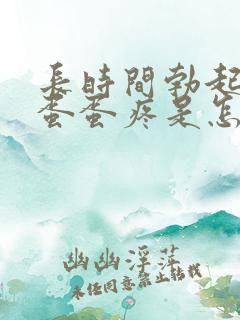 長時間勃起
蛋蛋疼是怎
幽幽浮萍
未经同意禁止转载